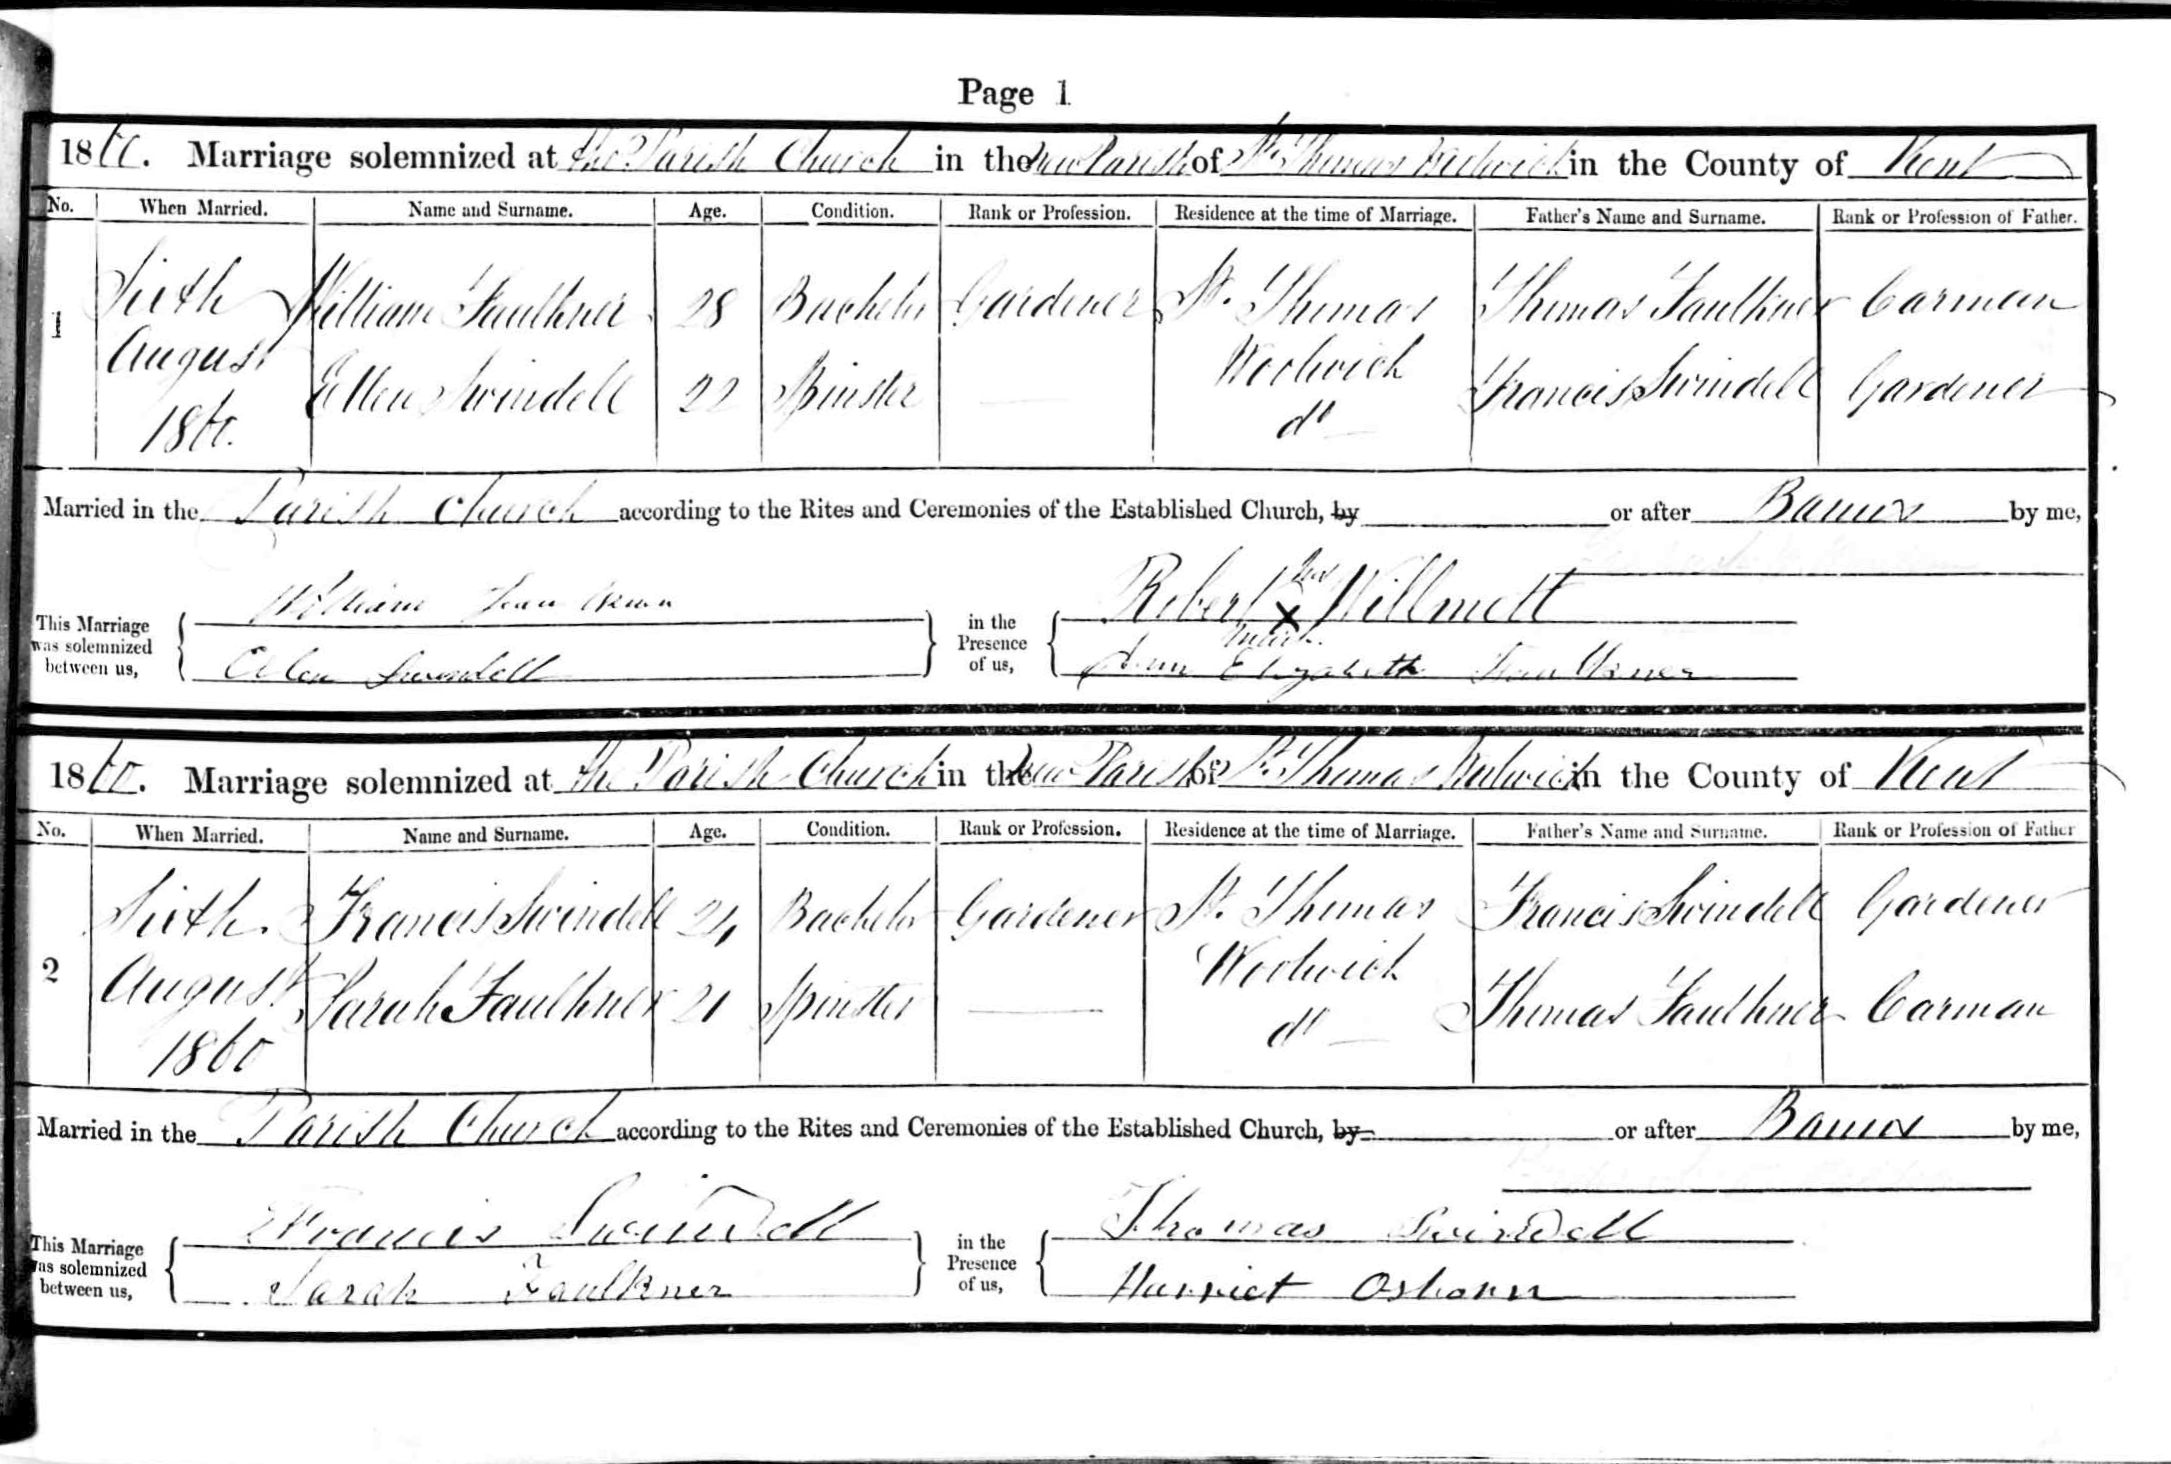 Page 1
1860. Marriage solemnized at the Parish Church in the new Parish of St. Thomas Woolwich in the County of Kent
No. When Married. Name and Surname. Age. Condition. Rank or Profession. Residence at the time of Marriage. Father's Name and Surname. Rank or Profession of Father.
1 Sixth August 1860. William Faulkner 28 Bachelor Gardener St. Thomas Woolwich Thomas Faulkner Carman
Ellen Swindell 22 Spinster — do — Francis Swindell Gardener
Married in the Parish Church according to the Rites and Ceremonies of the Established Church, by or after Banns by me,
This Marriage was solemnized between us, William in the Presence of us, Robert his X mark Willmott
Ellen Swindell Ann Elizabeth
1860. Marriage solemnized at the Parish Church in the new Parish of St. Thomas Woolwich in the County of Kent
No. When Married. Name and Surname. Age. Condition. Rank or Profession. Residence at the time of Marriage. Father's Name and Surname. Rank or Profession of Father
2 Sixth. August 1860 Francis Swindell 24 Bachelor Gardener St. Thomas Woolwich Francis Swindell Gardener
Sarah Faulkner 21 Spinster — do — Thomas Faulkner Carman
Married in the Parish Church according to the Rites and Ceremonies of the Established Church, by or after Banns by me,
This Marriage was solemnized between us, Francis Swindell in the Presence of us, Thomas Swindell
Sarah Faulkner Harriet Osborn